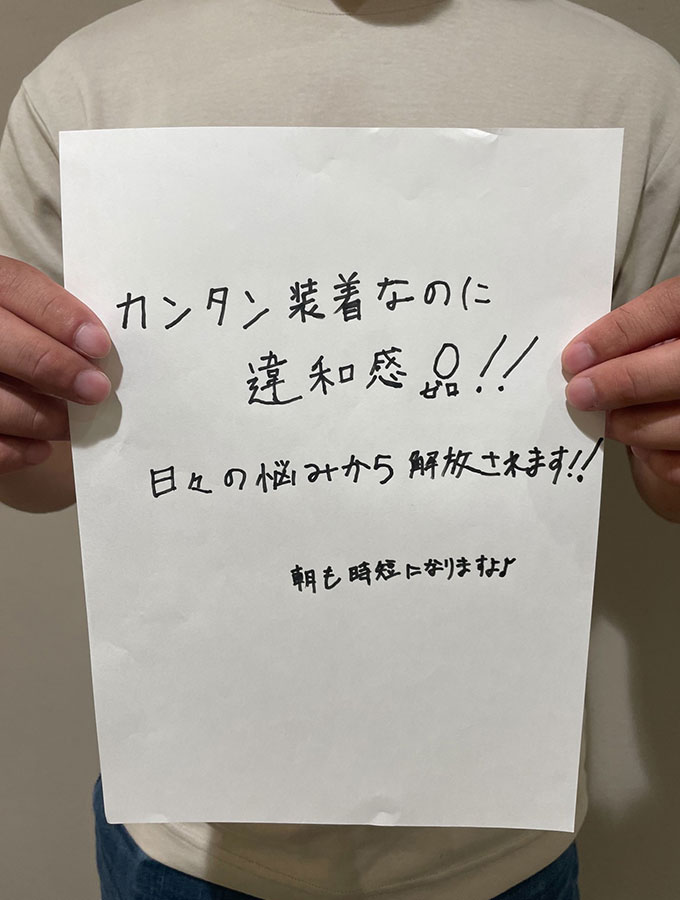 カンタン装着なのに
違和感0ゼロ!!
日々の悩みから解放されます!!
朝も時短になりますよ♪